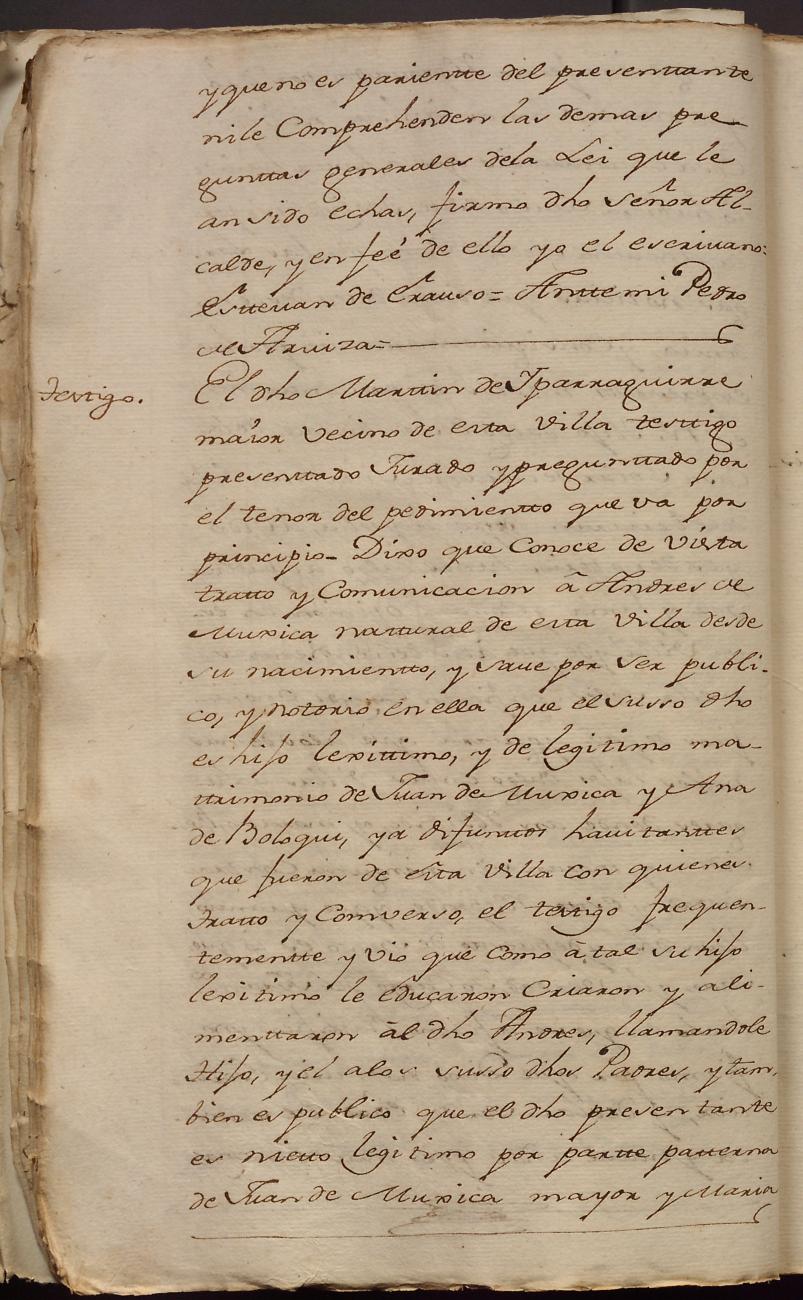 y que no es parientte del presenttante
ni le Comprehenden las demas pre
gunttas generales de la Lei que le
an sido echas, firmo dho señor Al-
calde, y en feé de ello yo el escrivano=
Esttevan de Erauso= Anttemi Pedro
de Arviza=
Testigo.
El dho Marttin de Yparraguirre
maior Vecino de esta Villa testtigo
presenttado Jurado y pregunttado por
el tenor del pedimientto que va por
principio- Dixo que Conoce de Vista
tratto y Comunicacion â Andres de
Muxica nattural de esta Villa desde
su nacimientto, y save por ser publi-
co, y notorio en ella que el susso dho
es hijo lexittimo, y de legitimo ma-
ttrimonio de Juan de Muxica y Ana
de Boloqui, ya difunttos havitanttes
que fueron de esta Villa con quienes
tratto y Converso, el testigo frequen-
tementte y vió que como â tal su hijo
lexitimo le educaron Criaron y ali-
menttaron âl dho Andres, llamandole
Hijo, y el a los susso dhos Padres, y tam,
bien es publico que el dho presentante
es nietto legitimo por partte patterna
de Juan de Muxica mayor y Maria